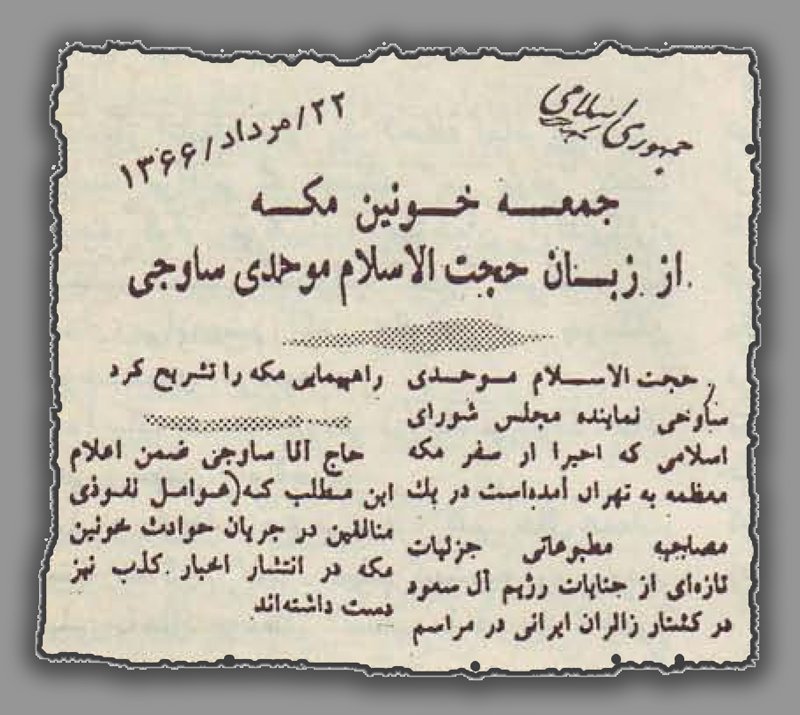 جمهوری اسلامی
۲۲/مرداد/۱۳۶۶
جمعه خونین مکه
از زبان حجت الاسلام موحدی ساوجی
حجت الاسلام موحدی
ساوجی نماینده مجلس شورای
اسلامی که اخیرا از سفر مکه
معظمه به تهران آمده‌است در یك
مصاحبه مطبوعاتی جزئیات
تازه‌ای از جنایات رژیم آل سعود
در کشتار زائران ایرانی در مراسم
راهپیمایی مکه را تشریح کرد
حاج آقا ساوجی ضمن اعلام
این مطلب که(عوامل نفوذی
منافقین در جریان حوادث خونین
مکه در انتشار اخبار کذب نیز
دست داشته‌اند